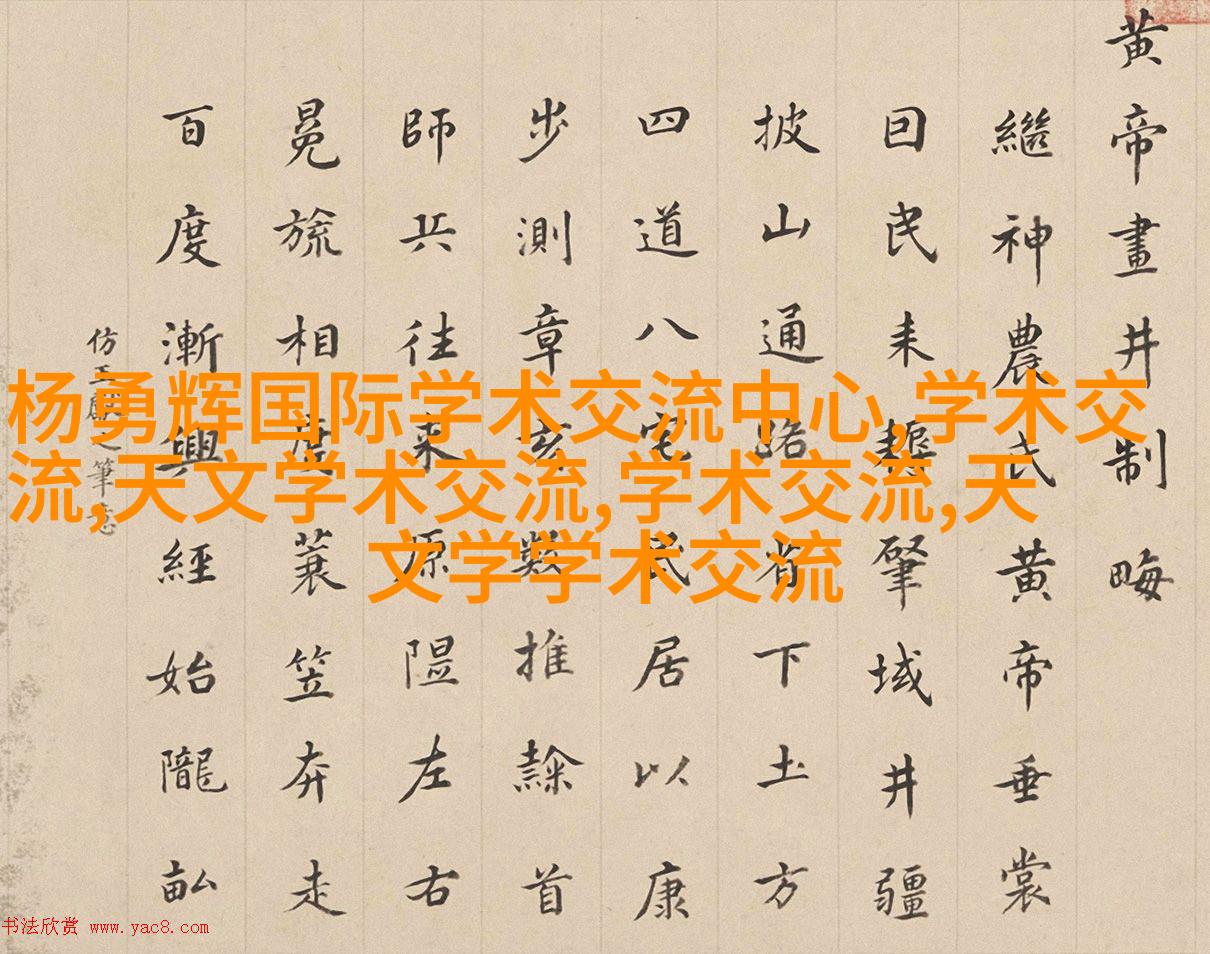 杨勇辉国际学术交流中心,学术交
流,天文学术交流,学术交流,天
文学学术交流
黄帝畫井制畮
繼神農氏黄帝垂裳
囙民耒肇域井疆
披山通路省下土方
四道八宅民居以康
步測章亥數推隸首
師兵往來原隰左右
冕旒相度蓑笠奔走
百度漸興經始隴畝
仿王獻之筆意
书法欣赏 www.yac8.com